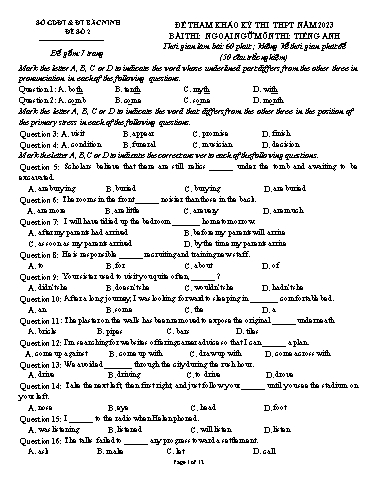 SỞ GD&ĐT & ĐT BẮC NINH
ĐỀ SỐ 2
Đề gồm: 7 trang
ĐỀ THAM KHẢO KỲ THI THPT NĂM 2023
BÀI THI: NGOẠI NGỮ MÔN THI: TIẾNG ANH
Thời gian làm bài: 60 phút; không kể thời gian phát đề
(50 câu trắc nghiệm)
Mark the letter A, B, C or D to indicate the word whose underlined part differs from the other three in
pronunciation in each of the following questions.
Question 1: A. both B. tenth C. myth D. with
Question 2: A. comb B. come C. some D. month
Mark the letter A, B, C or D to indicate the word that differs from the other three in the position of
the primary stress in each of the following questions.
Question 3: A. visit B. appear C. promise D. finish
Question 4: A. condition B. funeral C. musician D. decision
Mark the letter A, B, C or D to indicate the correct answer to each of the following questions.
Question 5: Scholars believe that there are still relics ______ under the tomb and awaiting to be
excavated.
A. are burying B. buried C. burying D. are buried
Question 6: The rooms in the front ______ noisier than those in the back.
A. are more B. are little C. are very D. are much
Question 7: I will have tidied up the bedroom ______ home tomorrow.
A. after my parents had arrived B. before my parents will arrive
C. as soon as my parents arrived D. by the time my parents arrive
Question 8: He is responsible ______ recruiting and training new staff.
A. to B. for C. about D. of
Question 9: Your sister used to visit you quite often, ______ ?
A. didn't she B. doesn't she C. wouldn't she D. hadn't she
Question 10: After a long journey, I was looking forward to sleeping in ______ comfortable bed.
A. an B. some C. the D. a
Question 11: The plaster on the walls has been removed to expose the original ______ underneath.
A. bricks B. pipes C. bars D. tiles
Question 12: I'm searching for websites offering career advice so that I can ______ a plan.
A. come up against B. come up with C. draw up with D. come across with
Question 13: We avoided ______ through the city during the rush hour.
A. drive B. driving C. to drive D. drove
Question 14: Take the next left, then first right, and just follow your ______ until you see the stadium on
your left.
A. nose B. eye C. head D. foot
Question 15: I ______ to the radio when Helen phoned.
A. was listening B. listened C. will listen D. listen
Question 16: The talks failed to ______ any progress toward a settlement.
A. ask B. make C. let D. call